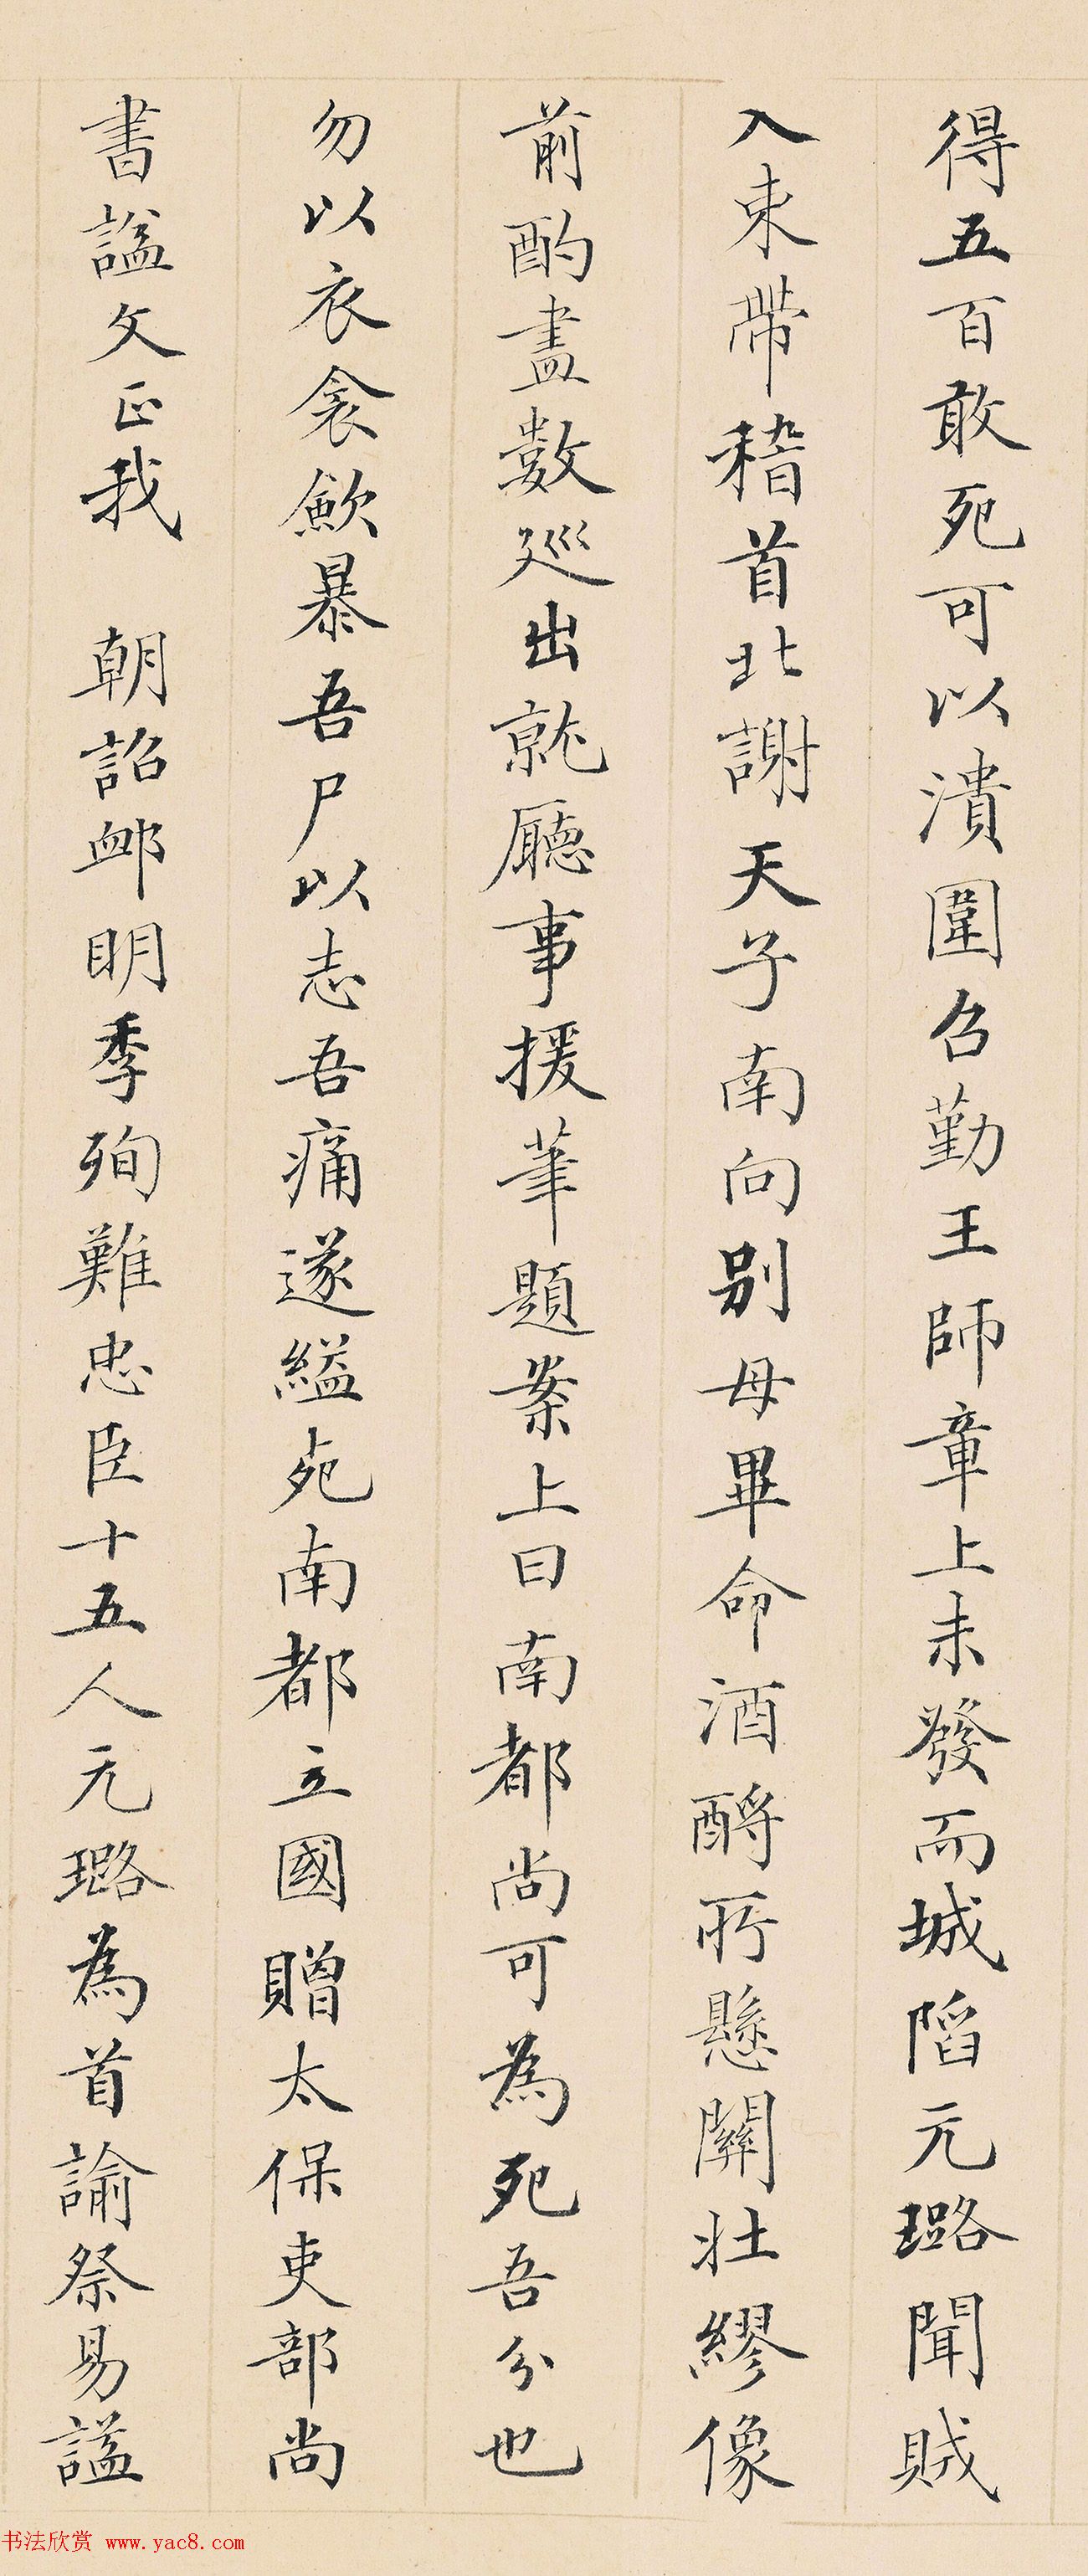 得五百敢死可以潰圍召勤王師章上未發而城陷元璐聞賊
入束帶稽首北謝天子南向别母畢命酒酹所懸關壮繆像
前酌盡數巡出就廳事援筆題案上曰南都尚可為死吾分也
勿以衣衾歛暴吾尸以志吾痛遂縊死南都立國贈太保吏部尚
書謚文正我 朝詔卹明季殉難忠臣十五人元璐為首諭祭易謚
书法欣赏 www.yac8.com